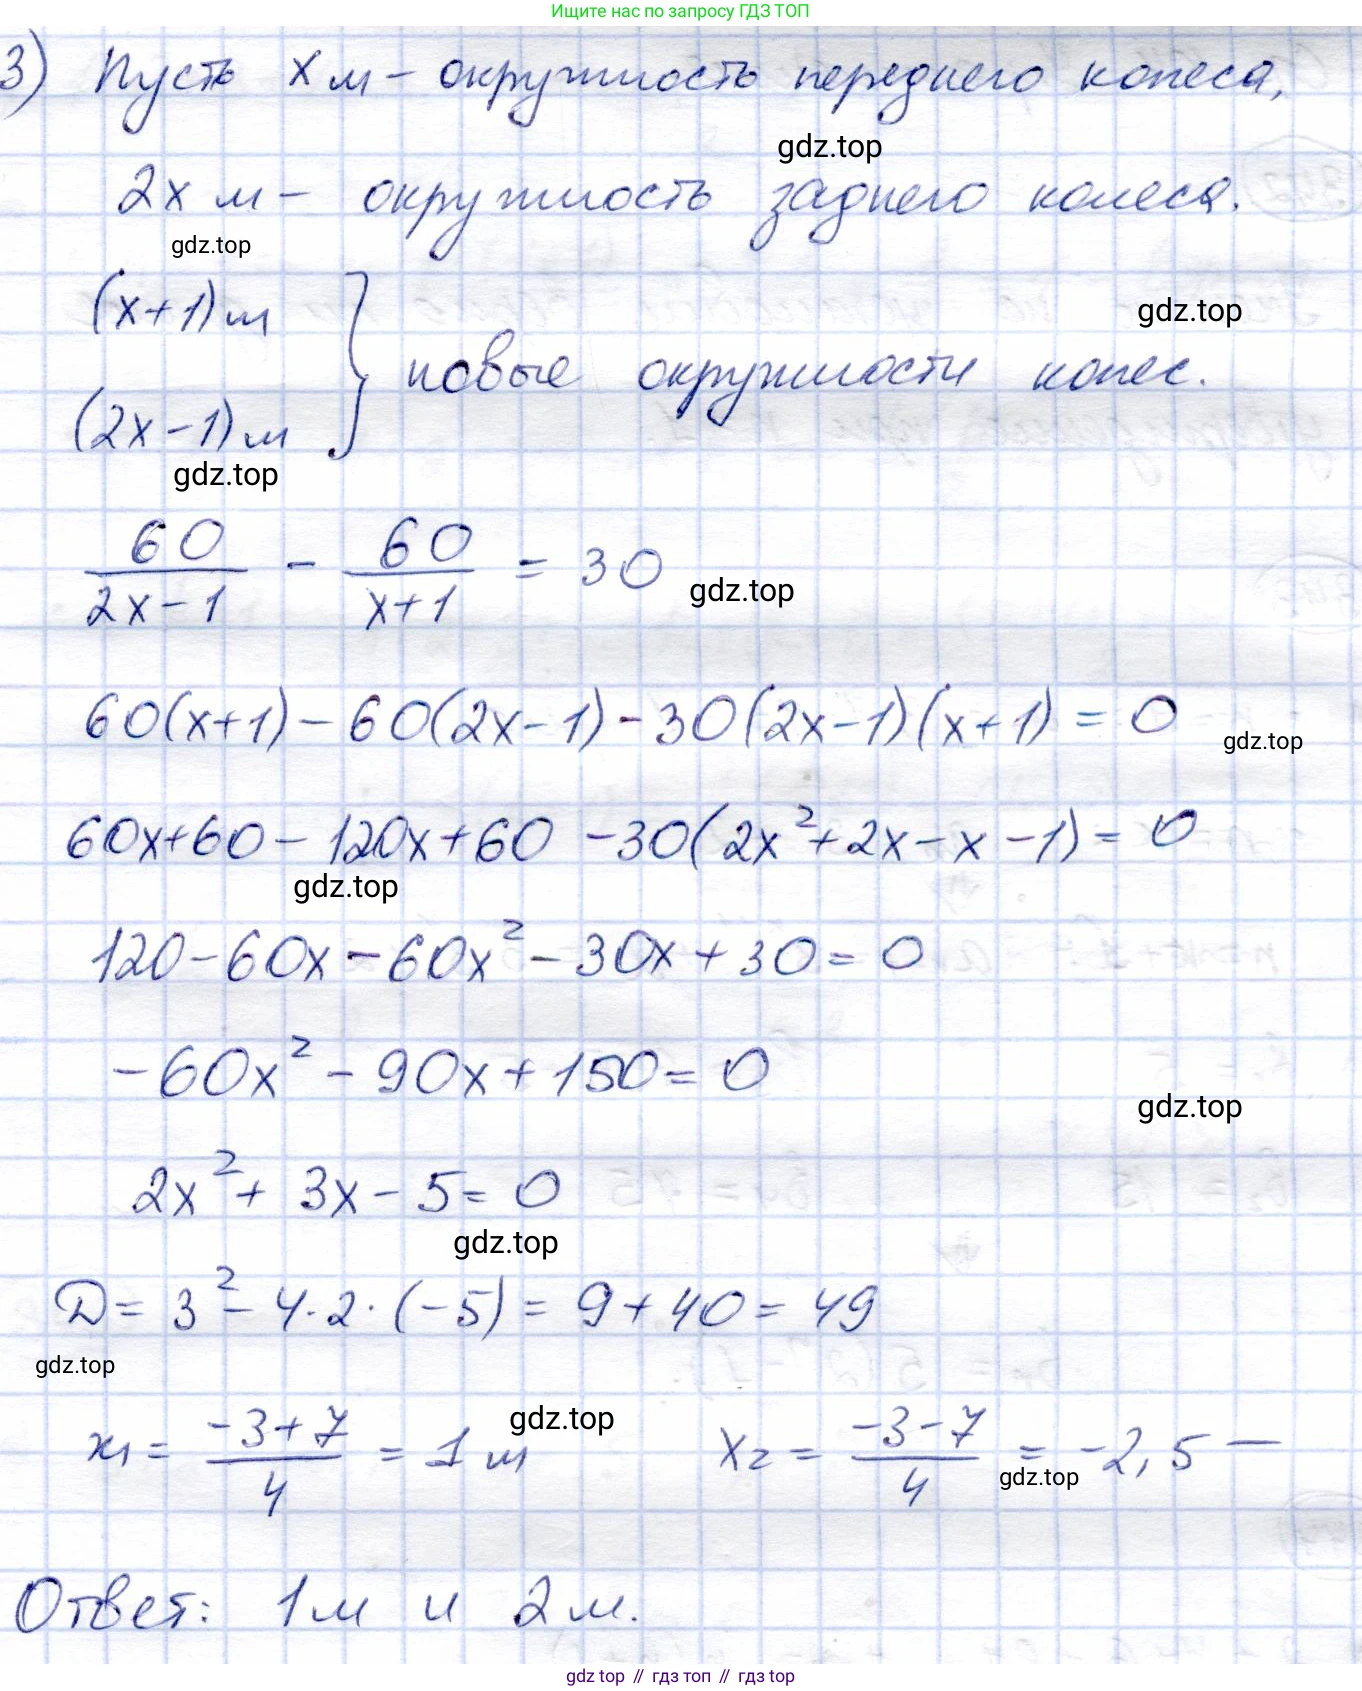 Ищите нас по запросу ГДЗ ТОП
3) Пусть x м – окружность переднего колеса,
gdz.top
2x м – окружность заднего колеса.
gdz.top
(x+1) м
gdz.top
} новые окружности колес.
(2x-1) м
gdz.top
60/(2x-1) - 60/(x+1) = 30
gdz.top
60(x+1) - 60(2x-1) - 30(2x-1)(x+1) = 0
gdz.top
60x+60-120x+60 -30(2x²+2x-x-1) = 0
gdz.top
120-60x-60x²-30x+30=0
-60x²-90x+150=0
gdz.top
2x²+3x-5=0
gdz.top
D=3²-4·2·(-5)=9+40=49
gdz.top
x₁ = (-3+7)/4 = 1 м gdz.top x₂ = (-3-7)/4 = -2,5 —
gdz.top
Ответ: 1м и 2м.
gdz top // гдз топ // гдз top